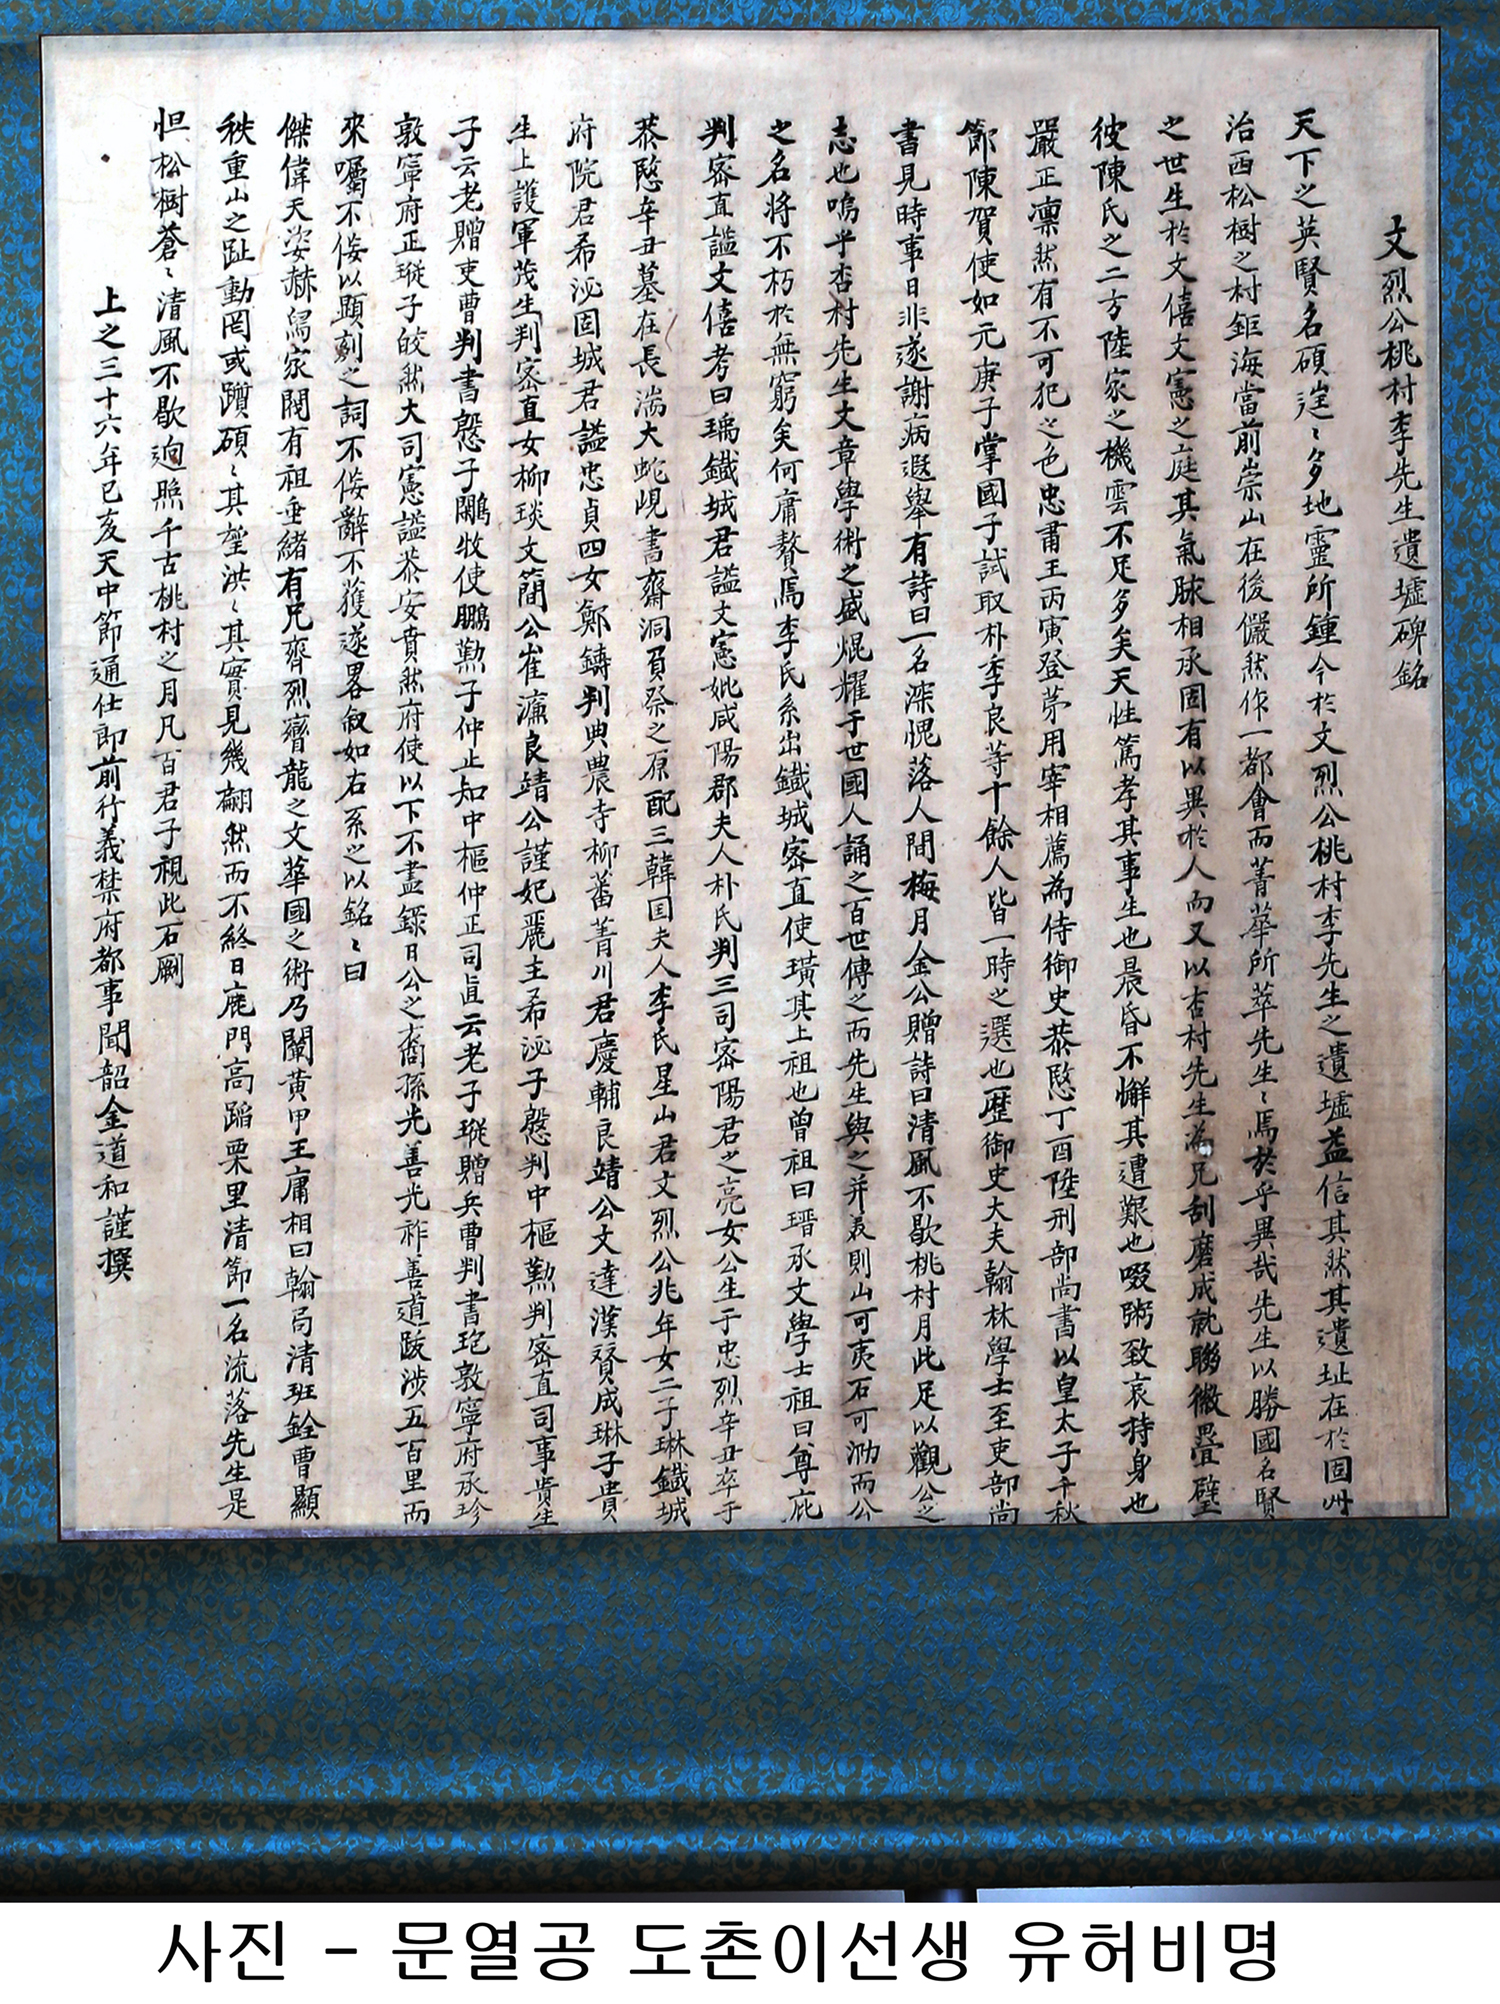 文烈公桃村李先生遺墟碑銘
天下之英賢名碩逞〻多地靈所鍾今於文烈公桃村李先生之遺墟益信其然其遺址在於固州
治西松樹之村鉅海當前崇山在後儼然作一都會而菁華所萃先生〻焉於乎異哉先生以勝國名賢
之世生於文僖文憲之庭其氣脉相承固有以異於人而又以杏村先生為兄刮磨成就聯徽疊璧
彼陳氏之二方陸家之機雲不足多矣天性篤孝其事生也晨昏不懈其遭艱也啜粥致哀持身也
嚴正凛然有不可犯之色忠肅王丙寅登茅用宰相薦為侍御史恭愍丁酉陞刑部尚書以皇太子千秋
節陳賀使如元庚子掌國子試取朴季良等十餘人皆一時之選也歷御史大夫翰林學士至吏部尚
書見時事日非遂謝病遐舉有詩曰一名深愧落人間梅月金公贈詩曰清風不歇桃村月此足以觀公之
志也嗚乎杏村先生文章學術之盛焜耀于世國人誦之百世傳之而先生與之并美則山可夷石可泐而公
之名将不朽於無窮矣何庸贅焉李氏系出鐵城密直使璜其上祖也曾祖曰瑨承文學士祖曰尊庇
判密直謚文僖考曰瑀鐵城君謚文憲妣咸陽郡夫人朴氏判三司密陽君之亮女公生于忠烈辛丑卒于
恭愍辛丑墓在長湍大蛇峴書齋洞負祭之原配三韓国夫人李氏星山君文烈公兆年女二子琳鐵城
府院君希泌固城君謚忠貞四女鄭鑄判典農寺柳蕃菁川君慶輔良靖公文達漢賛成琳子貴
生上護軍茂生判密直女柳琰文簡公崔濂良靖公謹妃麗主希泌子慇判中樞懃判密直司事貴生
子云老贈吏曹判書慇子鷴牧使鵬懃子仲止知中樞仲正司直云老子瑽贈兵曹判書玜敦寧府承珍
敦寧府正瑽子皎然大司憲謚恭安賁然府使以下不盡錄日公之裔孫光善光祚善道跋涉五百里而
來囑不侫以顯刻之詞不侫辭不獲遂畧叙如右系之以銘〻曰
傑偉天姿赫舄家閥有祖垂緒有兄齊烈賷龍之文華國之術乃闡黄甲王庸相曰翰局清班銓曹顯
秩重山之趾動罔或躓碩〻其望洪〻其實見幾翩然而不終日鹿門高蹈栗里清節一名流落先生是
怛松樹蒼〻清風不歇逈照千古桃村之月凡百君子視此石劂
上之三十六年己亥天中節通仕郎前行義禁府都事聞韶金道和謹撰
사진 - 문열공 도촌이선생 유허비명